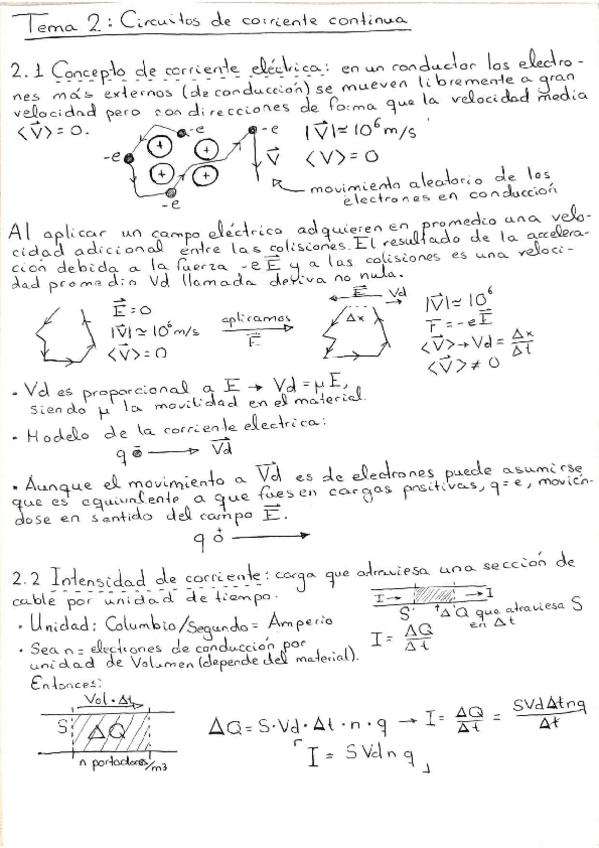 Tema 2: Circuitos de corriente continua
2.1 Concepto de corriente eléctrica: en un conductor los electro-
nes más externos (de conducción) se mueven libremente a gran
velocidad pero con direcciones de forma que la velocidad media
<V⃗> = 0.
-e
-e
-e
-e
+
+
+
+
V⃗
|V⃗| ≃ 10⁶ m/s
<V> = 0
movimiento aleatorio de los
electrones en conducción
Al aplicar un campo eléctrico adquieren en promedio una velo-
cidad adicional entre las colisiones. El resultado de la acelera-
ción debida a la fuerza -eE⃗ y a las colisiones es una veloci-
dad promedio Vd llamada deriva no nula.
E⃗ = 0
|V⃗| ≃ 10⁶ m/s
<V⃗> = 0
aplicamos
E⃗
E⃗ Vd
Δx
|V⃗| ≃ 10⁶
F⃗ = -eE⃗
<V⃗> → Vd = Δx/Δt
<V⃗> ≠ 0
· Vd es proporcional a E → Vd = μE,
siendo μ la movilidad en el material.
· Modelo de la corriente electrica:
q Vd⃗
· Aunque el movimiento a Vd⃗ es de electrones puede asumirse
que es equivalente a que fuesen cargas positivas, q=e, movién-
dose en sentido del campo E⃗.
q +
2.2 Intensidad de corriente: carga que atraviesa una sección de
cable por unidad de tiempo.
I → → I
S ΔQ que atraviesa S
en Δt
· Unidad: Columbio/Segundo = Amperio
I = ΔQ/Δt
· Sea n = electrones de conducción por
unidad de Volumen (depende del material).
Entonces:
Vol · Δt
S ΔQ
n portadores/m3
ΔQ = S·Vd·Δt·n·q → I = ΔQ/Δt = SVdΔtnq/Δt
I = SVdnq